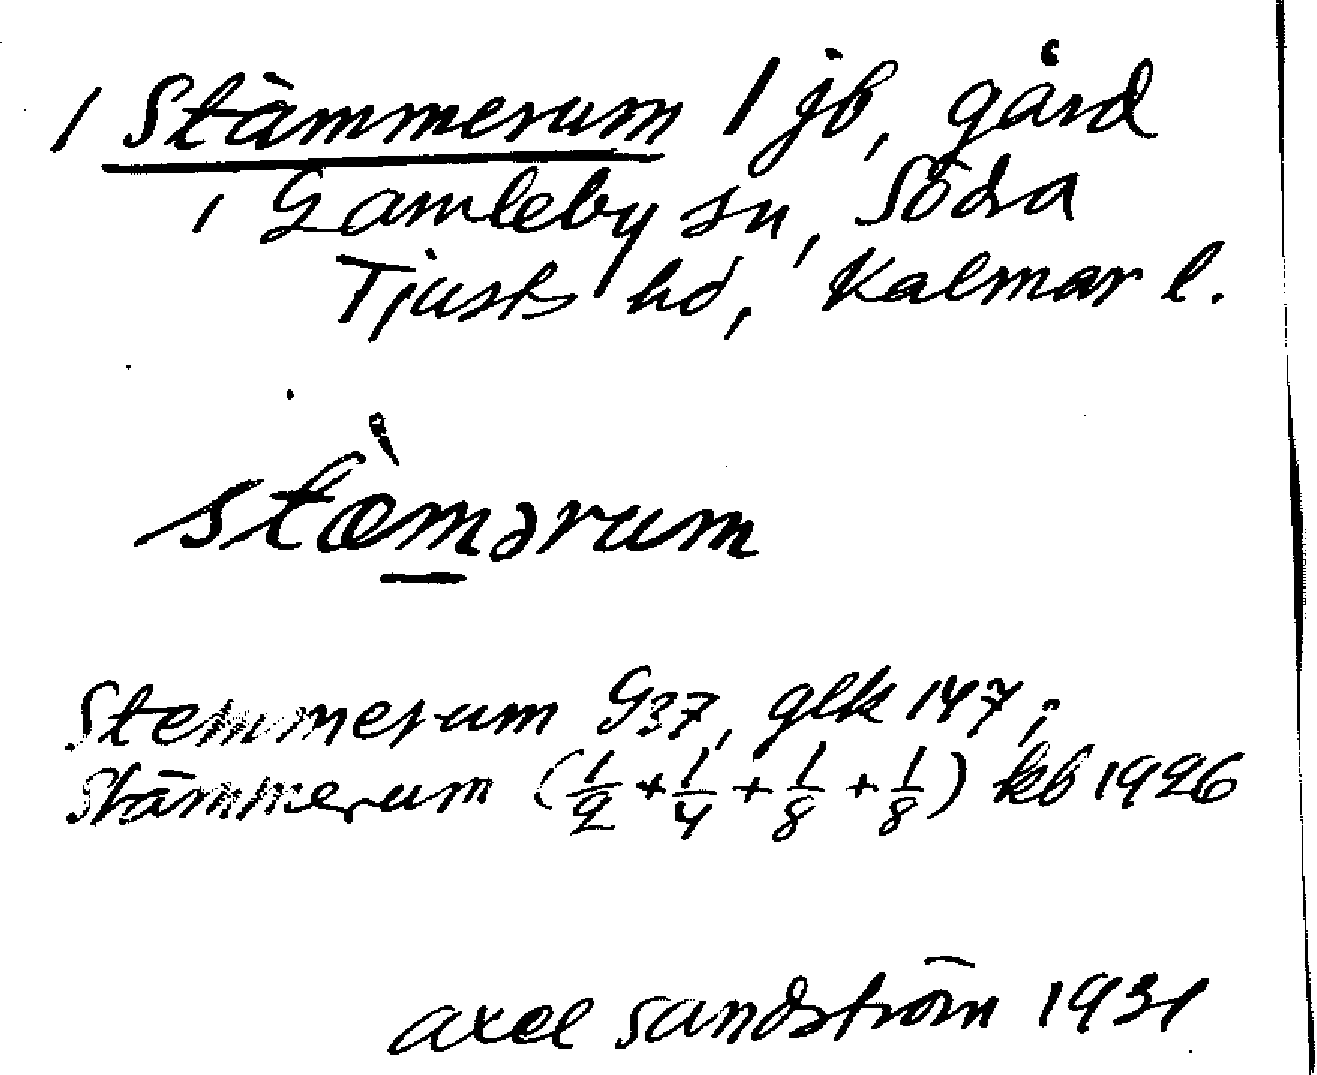 / Stämmerum / jb, gård
i Gamleby sn, Södra
Tjusts hd, Kalmar l.
stæ̀mərum
Stemmerum G37, glk 147;
Stämmerum (1/2 + 1/4 + 1/8 + 1/8) kb 1926
Axel Sandström 1931